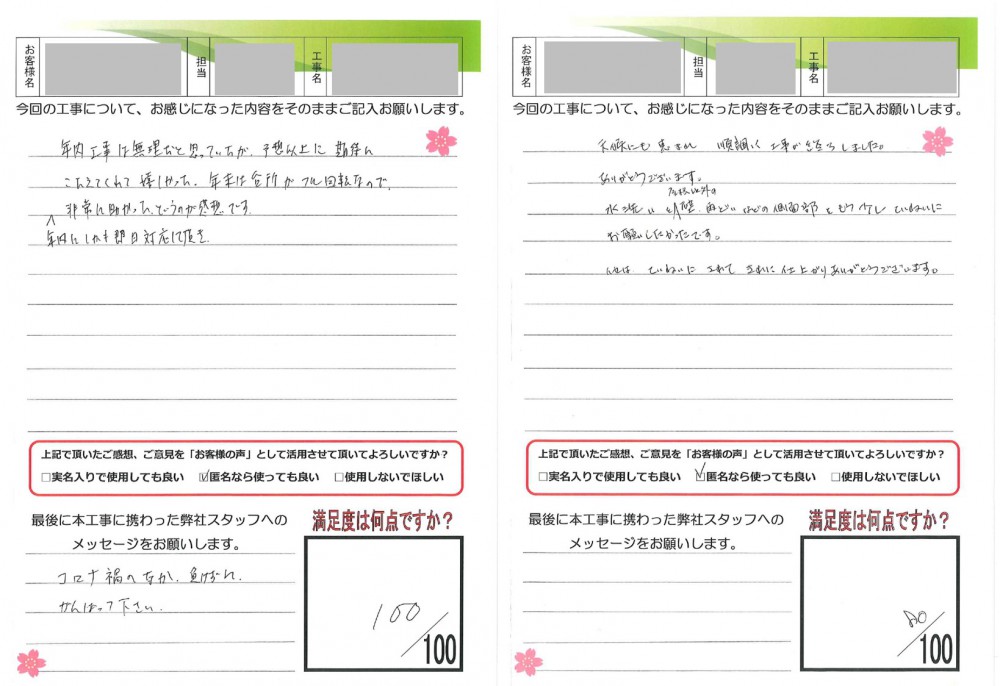 お客様名
担当
工事名
今回の工事について、お感じになった内容をそのままご記入お願いします。
年内工事は無理だと思っていたが、予想以上に
こたえてくれて嬉しかった。年末は台所がフル回転なので、
非常に助かったというのが感想です。
年内にしかも即日対応して頂き
上記で頂いたご感想、ご意見を「お客様の声」として活用させて頂いてよろしいですか？
□実名入りで使用しても良い ☑匿名なら使っても良い □使用しないでほしい
最後に本工事に携わった弊社スタッフへの
メッセージをお願いします。
コロナ禍のなか、負けずに、
がんばって下さい。
満足度は何点ですか？
100/100
お客様名
担当
工事名
今回の工事について、お感じになった内容をそのままご記入お願いします。
天候にも恵まれ 順調に工事が終了しました。
ありがとうございます。
水洗い 外壁 雨どいなどの側面部をもう少していねいに
お願いしたかったです。
他は ていねいにされて きれいに仕上がりありがとうございます。
上記で頂いたご感想、ご意見を「お客様の声」として活用させて頂いてよろしいですか？
□実名入りで使用しても良い ☑匿名なら使っても良い □使用しないでほしい
最後に本工事に携わった弊社スタッフへの
メッセージをお願いします。
満足度は何点ですか？
80/100